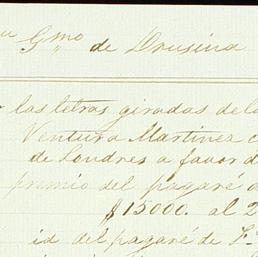 Gmo de Drusina
las letras giradas de la
Ventura Martinez
de Londres a favor d
premio del pagaré
$15000. al 2
id del pagaré de